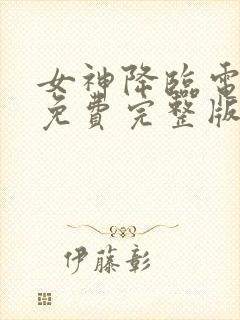 女神降臨電
免費完整版
伊藤彰